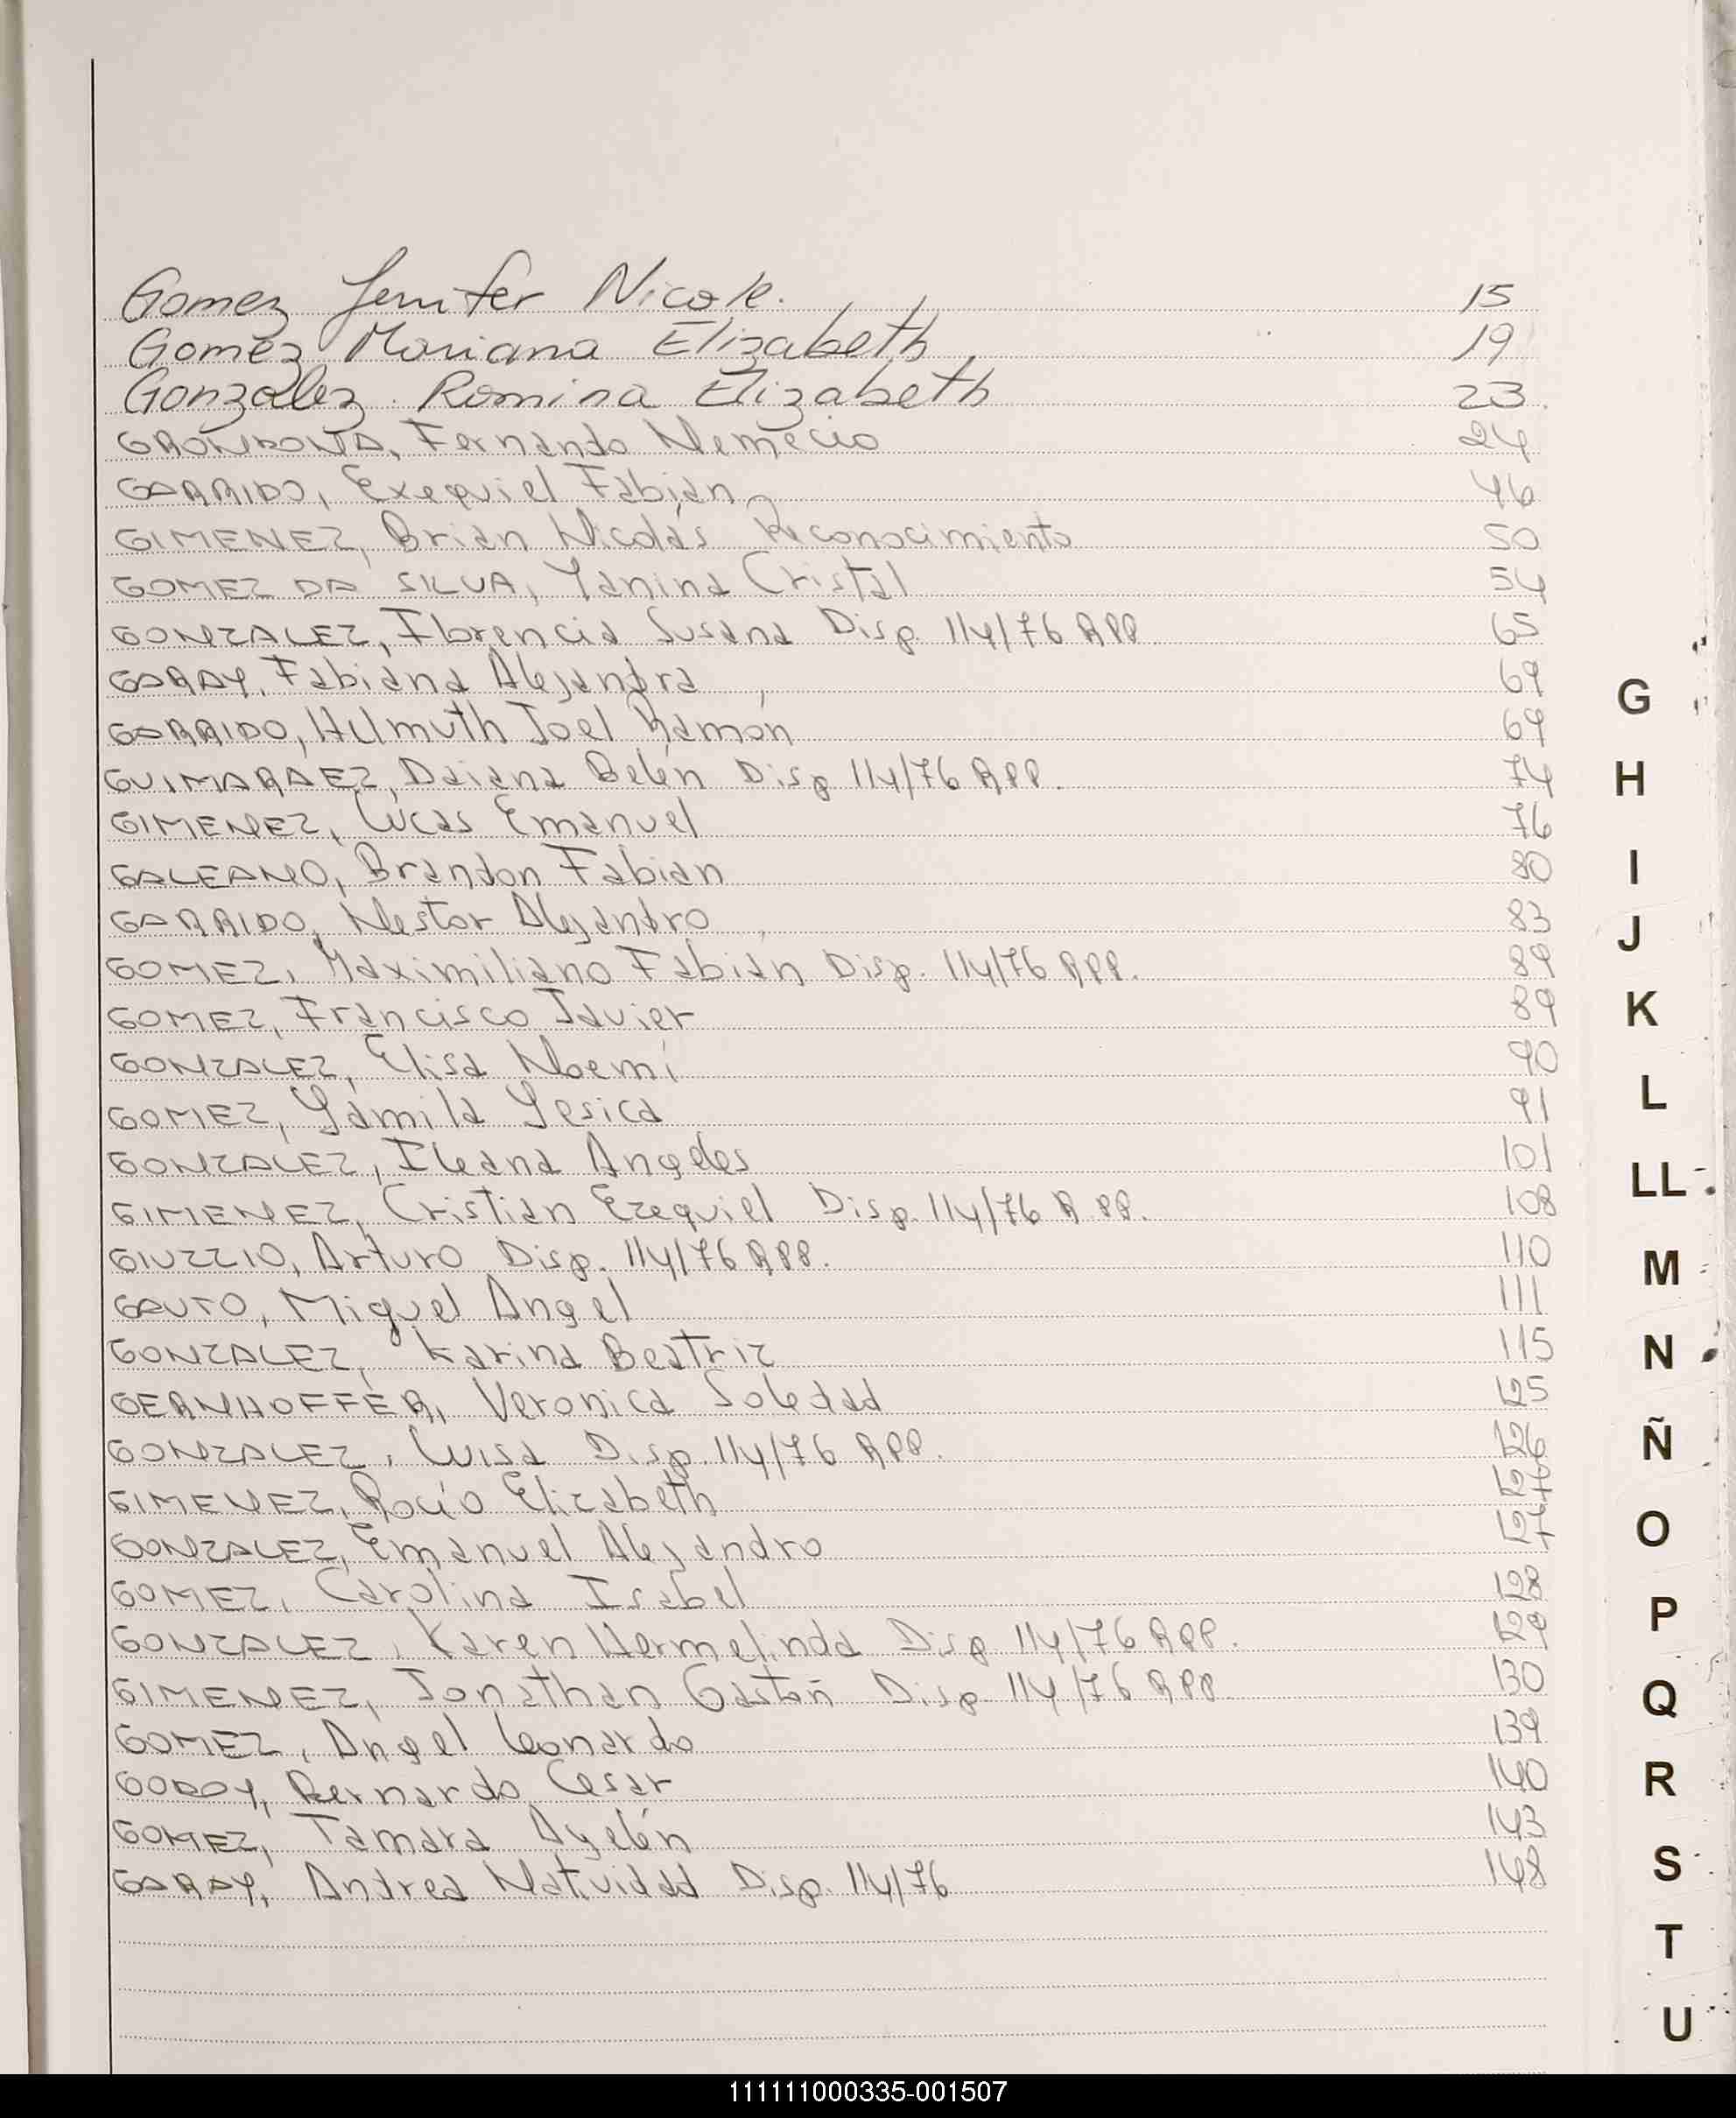 Gomez Jenifer Nicole. 15
Gomez Mariana Elizabeth 19
Gonzalez Romina Elizabeth 23
GRONDONA, Fernando Nemecio 24
GARRIDO, Exequiel Fabián 46
GIMENEZ, Brian Nicolás Reconocimiento 50
GOMEZ DA SILVA, Yanina Cristal 54
GONZALEZ, Florencia Susana Disp. 114/76 RPP 65
GARAY, Fabiana Alejandra 69
GARRIDO, Helmuth Joel Ramón 69
GUIMARAEZ, Daiana Belén Disp 114/76 RPP. 74
GIMENEZ, Lucas Emanuel 76
GALEANO, Brandon Fabian 80
GARRIDO, Nestor Alejandro 83
GOMEZ, Maximiliano Fabián Disp. 114/76 RPP. 89
GOMEZ, Francisco Javier 89
GONZALEZ, Elisa Noemí 90
GOMEZ, Yamila Yesica 91
GONZALEZ, Ileana Angeles 101
GIMENEZ, Cristian Ezequiel Disp. 114/76 RPP. 108
GIUZZIO, Arturo Disp. 114/76 RPP. 110
GAUTO, Miguel Angel 111
GONZALEZ, Karina Beatriz 115
GERNHOFFER, Veronica Soledad 125
GONZALEZ, Luisa Disp. 114/76 RPP. 126
GIMENEZ, Rocío Elizabeth
GONZALEZ, Emanuel Alejandro 127
GOMEZ, Carolina Isabel 128
GONZALEZ, Karen Hermelinda Disp 114/76 RPP. 129
GIMENEZ, Jonathan Gastón Disp. 114/76 RPP 130
GOMEZ, Angel Leonardo 139
GODOY, Bernardo Cesar 140
GOMEZ, Tamara Ayelén 143
GARAY, Andrea Natividad Disp. 114/76 148
G
H
I
J
K
L
LL
M
N
Ñ
O
P
Q
R
S
T
U
111111000335-001507